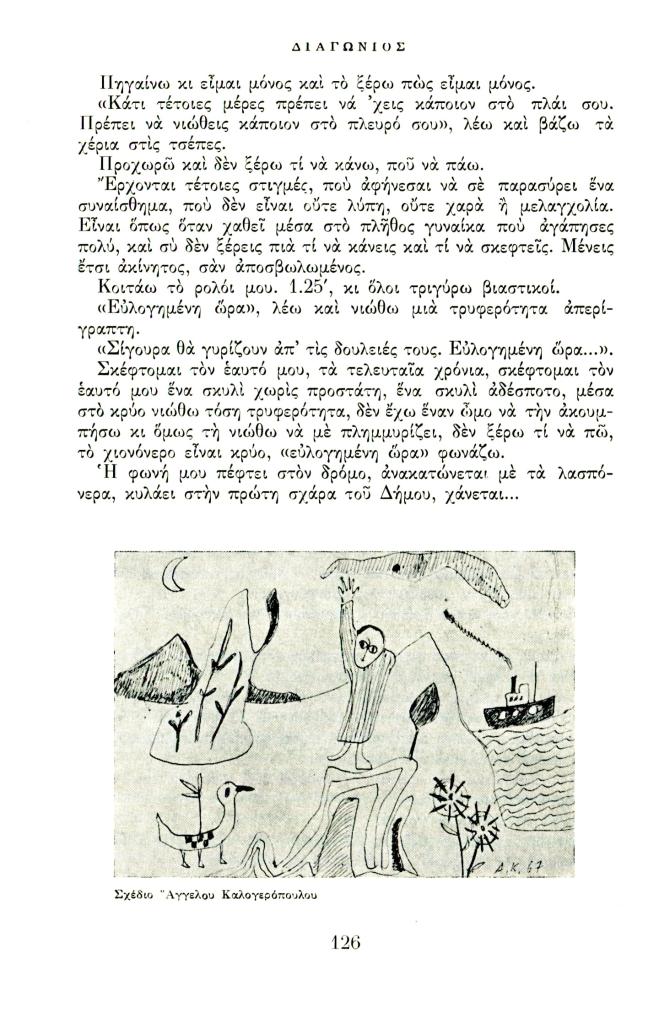 ΔΙΑΓΩΝΙΟΣ
Πηγαίνω κι εἶμαι μόνος καὶ τὸ ξέρω πὼς εἶμαι μόνος.
«Κάτι τέτοιες μέρες πρέπει νά 'χεις κάποιον στὸ πλάι σου.
Πρέπει νὰ νιώθεις κάποιον στὸ πλευρό σου», λέω καὶ βάζω τὰ
χέρια στὶς τσέπες.
Προχωρῶ καὶ δὲν ξέρω τί νὰ κάνω, ποῦ νὰ πάω.
Ἔρχονται τέτοιες στιγμές, ποὺ ἀφήνεσαι νὰ σὲ παρασύρει ἕνα
συναίσθημα, ποὺ δὲν εἶναι οὔτε λύπη, οὔτε χαρὰ ἢ μελαγχολία.
Εἶναι ὅπως ὅταν χαθεῖ μέσα στὸ πλῆθος γυναίκα ποὺ ἀγάπησες
πολύ, καὶ σὺ δὲν ξέρεις πιὰ τί νὰ κάνεις καὶ τί νὰ σκεφτεῖς. Μένεις
ἔτσι ἀκίνητος, σὰν ἀποσβωλωμένος.
Κοιτάω τὸ ρολόι μου. 1.25', κι ὅλοι τριγύρω βιαστικοί.
«Εὐλογημένη ὥρα», λέω καὶ νιώθω μιὰ τρυφερότητα ἀπερί-
γραπτη.
«Σίγουρα θὰ γυρίζουν ἀπ' τὶς δουλειές τους. Εὐλογημένη ὥρα...».
Σκέφτομαι τὸν ἑαυτό μου, τὰ τελευταῖα χρόνια, σκέφτομαι τὸν
ἑαυτό μου ἕνα σκυλὶ χωρὶς προστάτη, ἕνα σκυλὶ ἀδέσποτο, μέσα
στὸ κρύο νιώθω τόση τρυφερότητα, δὲν ἔχω ἕναν ὦμο νὰ τὴν ἀκουμ-
πήσω κι ὅμως τὴ νιώθω νὰ μὲ πλημμυρίζει, δὲν ξέρω τί νὰ πῶ,
τὸ χιονόνερο εἶναι κρύο, «εὐλογημένη ὥρα» φωνάζω.
Ἡ φωνή μου πέφτει στὸν δρόμο, ἀνακατώνεται μὲ τὰ λασπό-
νερα, κυλάει στὴν πρώτη σχάρα τοῦ Δήμου, χάνεται...
Α.Κ. 67
Σχέδιο Ἄγγελου Καλογερόπουλου
126